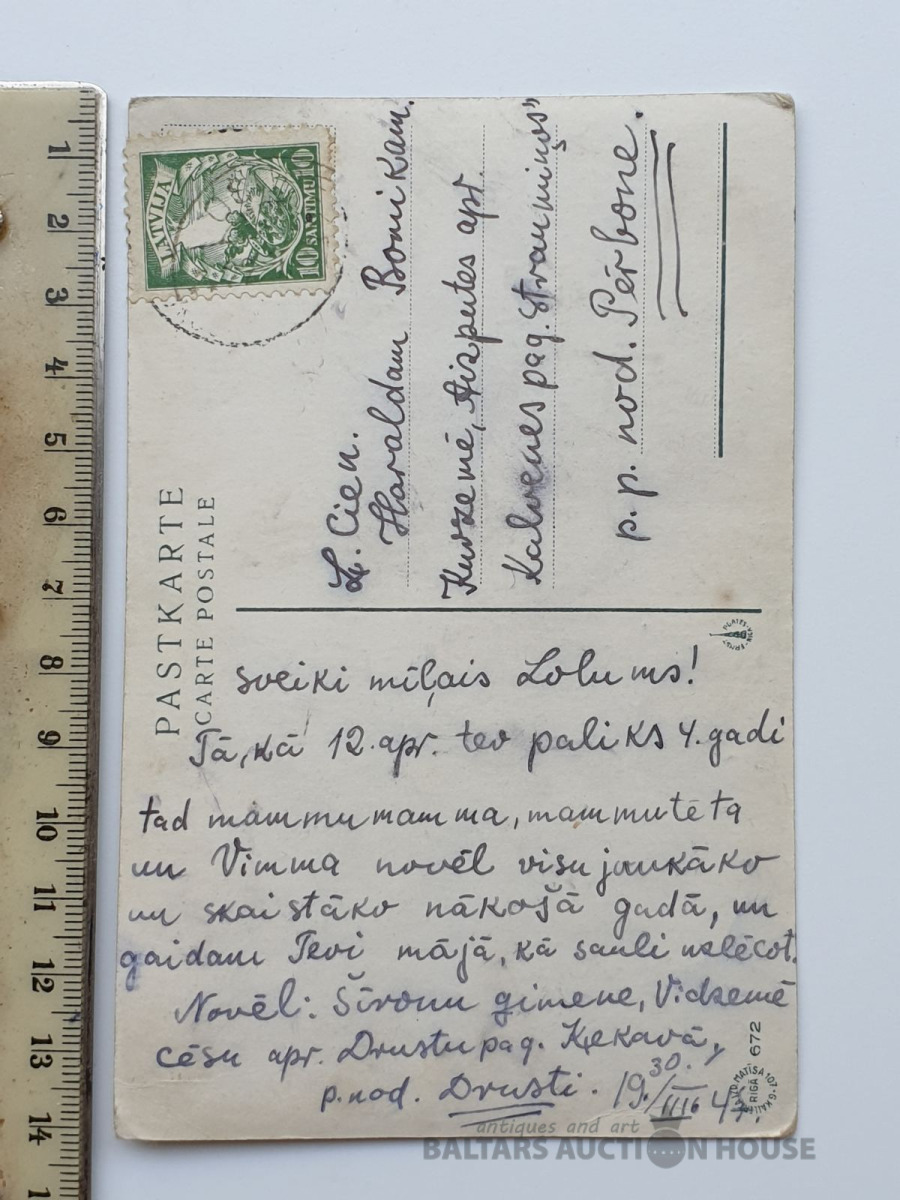 PASTKARTE
CARTE POSTALE
LATVIJA
10 SANTIMU 10
L. Cien.
Haraldam Bomikam.
Kurzemē, Aizputes apr.
Kalvenes pag. Strauminos"
p. p. nod. Pērbone.
Sveiki mīļais Lolums!
Tā, kā 12. apr. tev paliks 4. gadi
tad mammumamma, mammutēta
un Vimma novēl visu jaukāko
un skaistāko nākošā gadā, un
gaidam Tevi mājā, kā sauli uzlēcot.
Novēl: Šīronu gimene, Vidzemē
cēsu apr. Drustu pag. Ķekavā,
p. nod. Drusti.
672
RĪGĀ
antiques and art
BALTARS AUCTION HOUSE
1
2
3
4
5
6
7
8
9
10
11
12
13
14